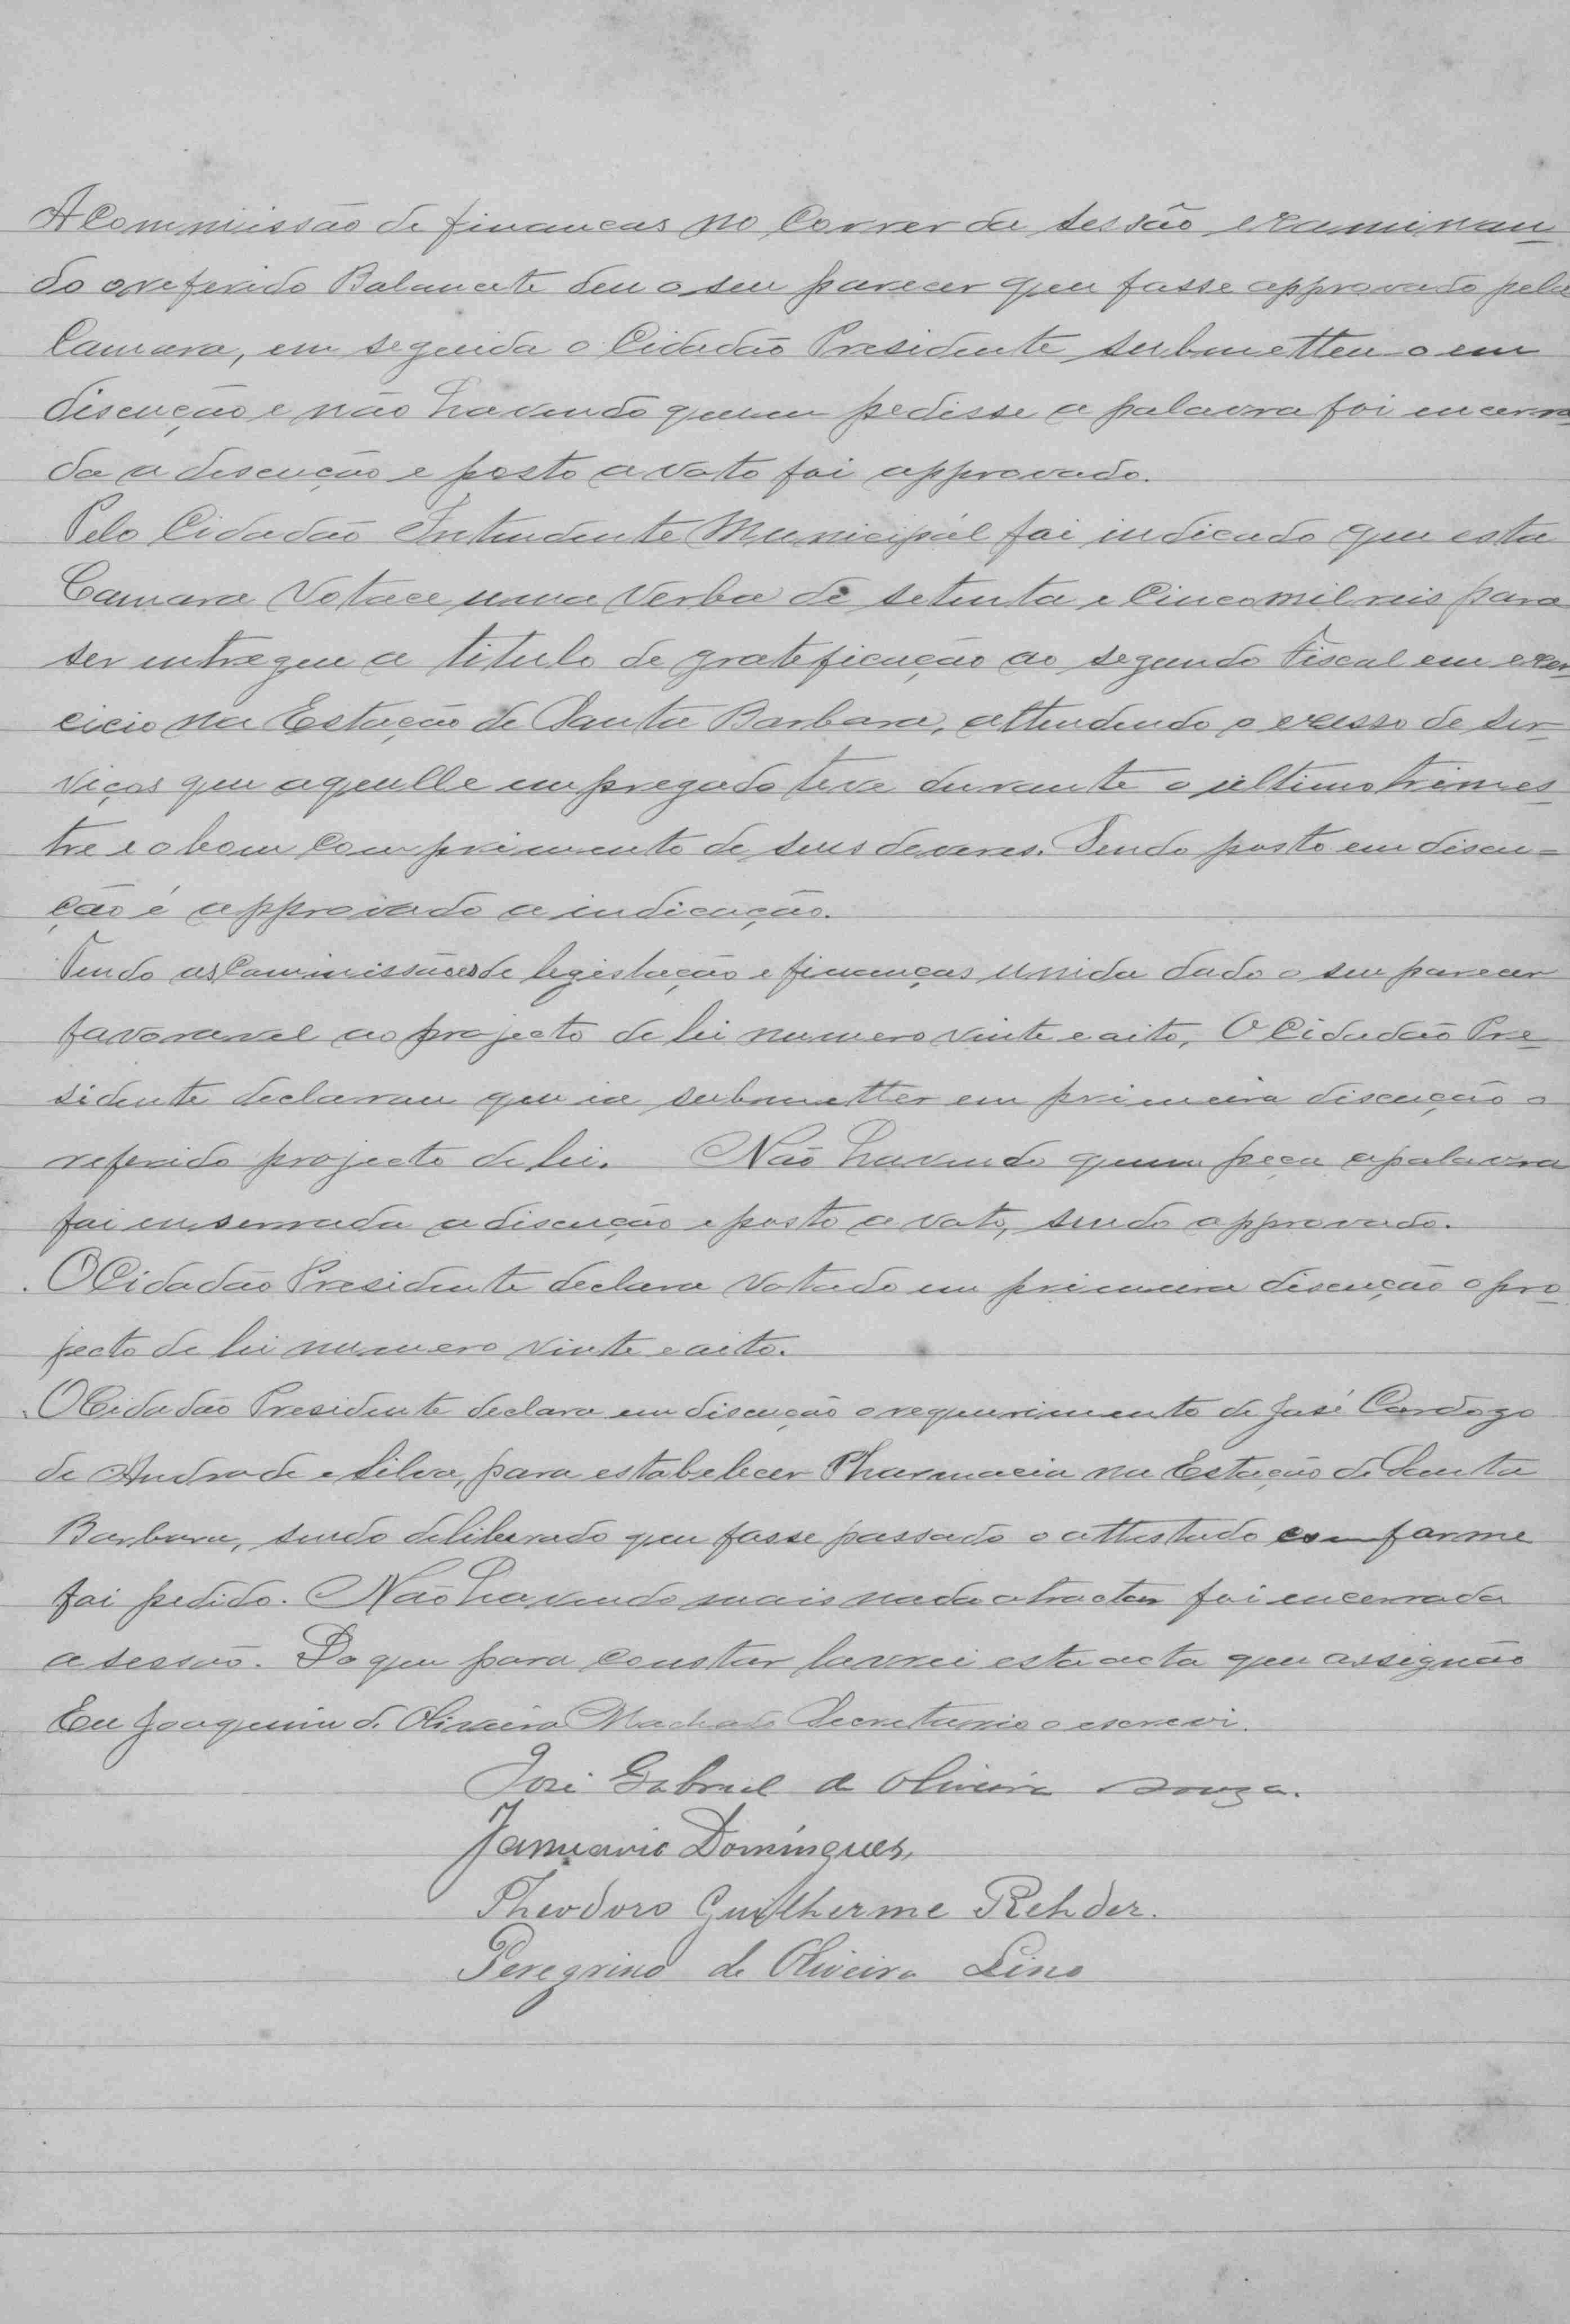 A Commissão de financas no correr da sessão examinan-
do o referido Balancete deu o seu parecer que fosse approvado pela
Camara, em seguida o Cidadão Presidente submetteu o em
discução e não havendo quem pedisse a palavra foi encerra
da a discução e posto a voto foi approvado.
Pelo Cidadão Intendente Municipal foi indicado que esta
Camara votace uma verba de setenta e cinco mil reis para
ser entregue a titulo de grateficação ao segundo Fiscal em exer
cicio na Estação de Santa Barbara, attendendo o excesso de ser-
viços que aquelle empregado teve durante o ultimo trimes-
tre e o bom comprimento de seus deveres. Sendo posto em discu=
ção é approvado a indicação.
Tendo as Commissões de legistação e finanças unida dado o seu parecer
favoravel ao projecto de lei numero vinte e oito, O Cidadão Pre-
sidente declarou que ia submetter em primeira discução o
referido projecto de lei. Não havendo quem peça a palavra
foi enserrada a discução e posto a voto, sendo approvado.
O Cidadão Presidente declara votado em primeira discução o pro-
jecto de lei numero vinte e oito.
O Cidadão Presidente declara em discução o requerimento de José Cardozo
de Andrade e Silva, para estabelecer Pharmacia na Estação de Santa
Barbara, sendo deliberado que fosse passado o attestado conforme
foi pedido. Não havendo mais nada a tractar foi encerrada
a sessão. Do que para constar lavrei esta acta que assignão
Eu Joaquim de Oliveira Machado Secretario o escrevi.
José Gabriel de Oliveira Souza.
Januario Domingues,
Theodoro Guilherme Rehder.
Peregrino de Oliveira Lino